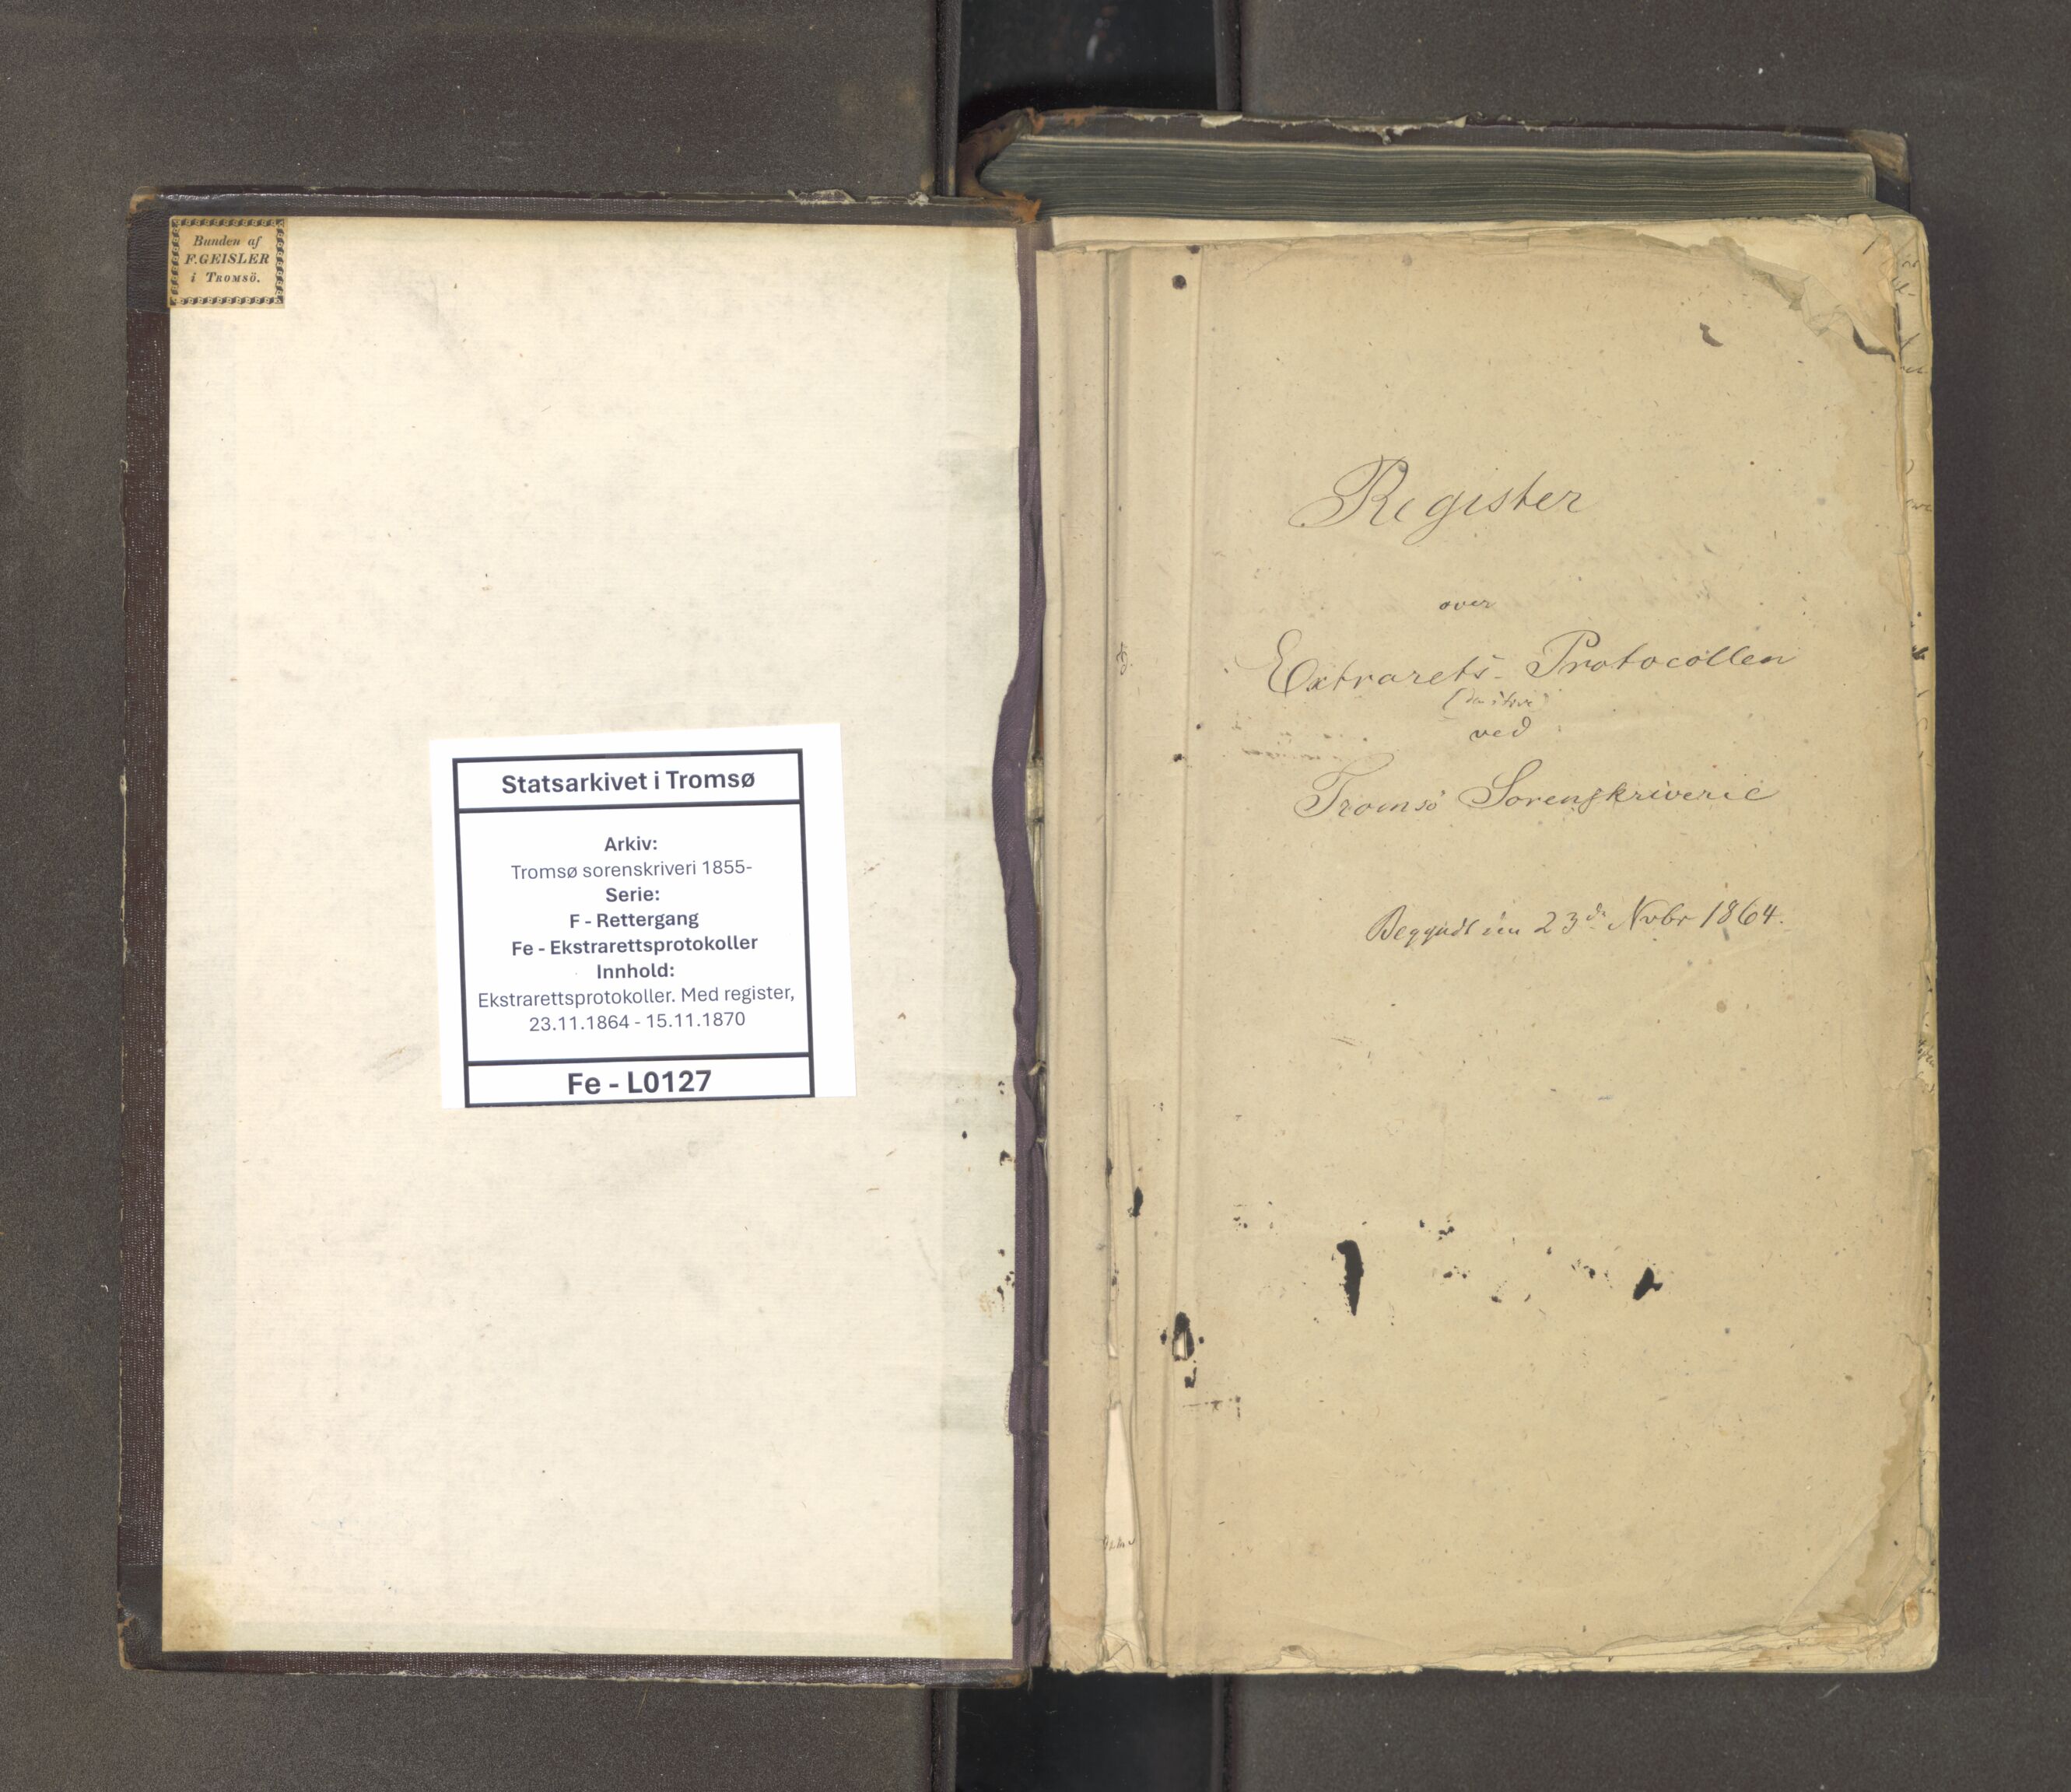 Bunden af
F. GEISLER
i TROMSÖ.
Statsarkivet i Tromsø
Arkiv:
Tromsø sorenskriveri 1855-
Serie:
F - Rettergang
Fe - Ekstrarettsprotokoller
Innhold:
Ekstrarettsprotokoller. Med register,
23.11.1864 - 15.11.1870
Fe - L0127
Register
over
Extrarets-Protocollen
ved
Tromsö Sorenskriverie
Begyndt den 23de Nvbr 1864.